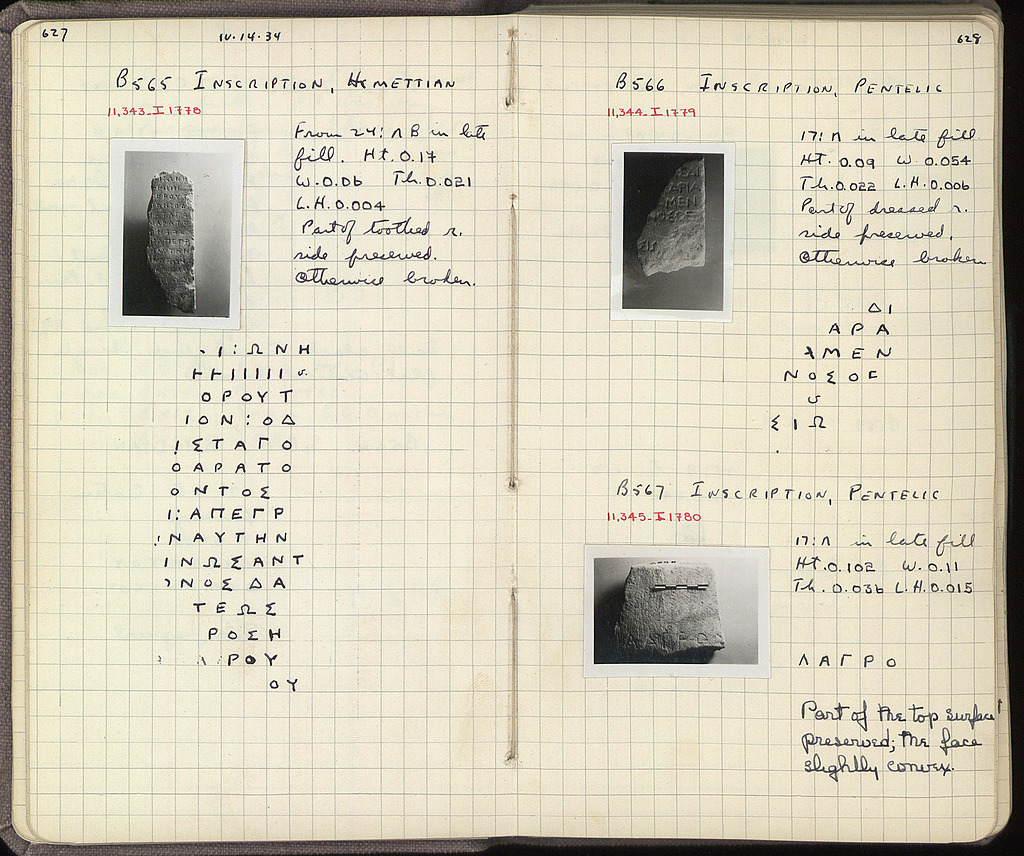 627
IV.14.34
B565 INSCRIPTION, HYMETTIAN
11,343-I 1778
From 24: Λ B in late
fill. Ht. 0.17
W. 0.06 Th. 0.021
L.H. 0.004
Part of toothed r.
side preserved.
Otherwise broken.
Ι : Ω Ν Η
Η Η Ι Ι Ι Ι Ι
Ο Ρ Ο Υ Τ
Ι Ο Ν : Ο Δ
Ι Σ Τ Α Γ Ο
Ο Α Ρ Α Τ Ο
Ο Ν Τ Ο Σ
Ι : Α Π Ε Γ Ρ
Ν Α Υ Τ Η Ν
Ι Ν Ω Σ Α Ν Τ
Ν Ο Σ Δ Α
Τ Ε Ω Σ
Ρ Ο Σ Η
Ρ Ο Υ
Ο Υ
628
B566 INSCRIPTION, PENTELIC
11,344-I 1779
17: Λ in late fill
HT. 0.09 W. 0.054
Th. 0.022 L.H. 0.006
Part of dressed r.
side preserved.
Otherwise broken
Δ Ι
Α Ρ Α
Μ Ε Ν
Ν Ο Σ Ο Ε
Σ Ι Ω
B567 INSCRIPTION, PENTELIC
11,345-I 1780
17: Λ in late fill
HT. 0.102 W. 0.11
Th. 0.036 L.H. 0.015
Λ Α Γ Ρ Ο
Part of the top surface
preserved; the face
slightly convex.